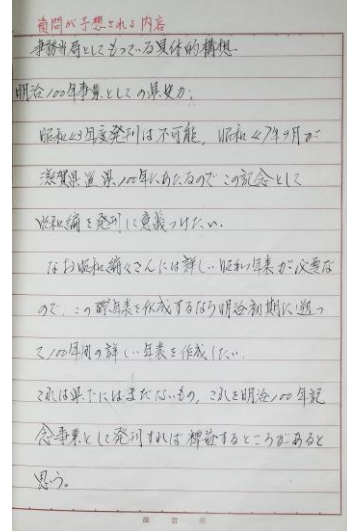 質問が予想される内容
事務当局としてもっている具体的構想
明治100年事業としての県史か;
昭和43年度発刊は不可能、昭和47年9月が
滋賀県置県100年にあたるのでこの記念として
昭和編を発刊し意義づけたい。
なお昭和編々さんには詳しい昭和年表が必要な
ので、この際年表を作成するなら明治初期に遡っ
て100年間の詳しい年表を作成したい。
これは県下にはまだないもの、これを明治100年記
念事業として発刊すれば裨益するところがあると
思う。
滋賀県